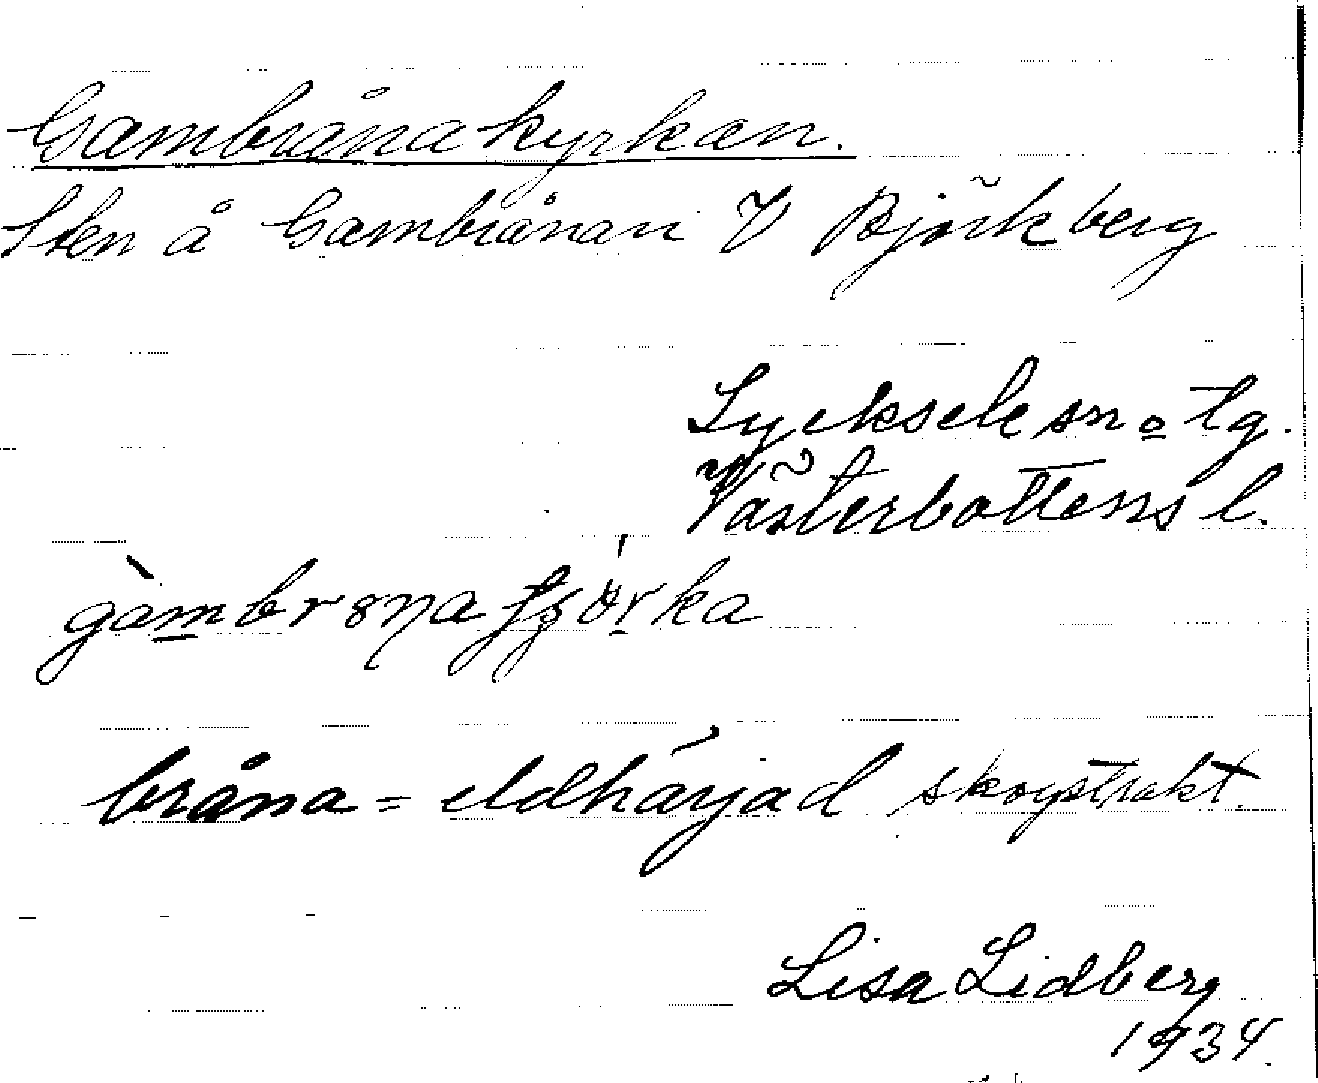 Gambrånakyrkan.
Sten å Gambrånan V Björkberg
Lycksele sn o tg.
Västerbottens l.
bråna = eldhärjad skogstrakt.
Lisa Lidberg
1934.